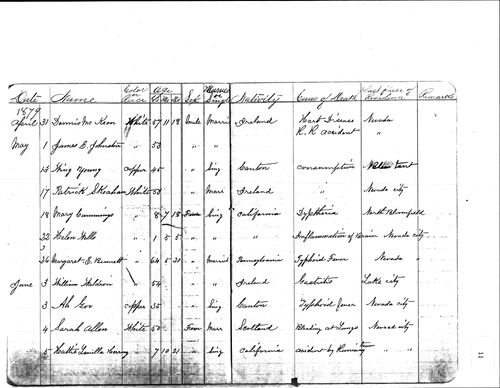 Date Name Color or Race Age Sex Married or Single Nativity Cause of Death Last place of Residence Remarks
1879
April 31 Dennis McKeon White 57 11 18 Male Marri Ireland Hart Disease Nevada
May 1 James E. Johnston " 50 " " R.R accident "
13 King Young copper 45 " Sing Canton consumption
17 Patrick Skeahan White 50 " Marr Ireland " Nevada city
18 Mary Cummings " 8 7 18 Fem Sing California Dyptheria North Bloomfield
22 Helen Hills " 1 5 5 " " " Inflammation of Brain Nevada city
26 Margaret E. Bennett " 64 5 21 " Married Pennsylvania Typhoid Fever Nevada "
June 3 William " 54 " " Ireland Gastritis Lake city
3 Ah Gov copper 35 " Sing Canton Typhoid fever Nevada city
4 Sarah Allen White 50 Fem Marr Scotland Bleeding at Lungs Nevada city
5 Hattie " 7 10 21 " Sing California accident by Running " "
11